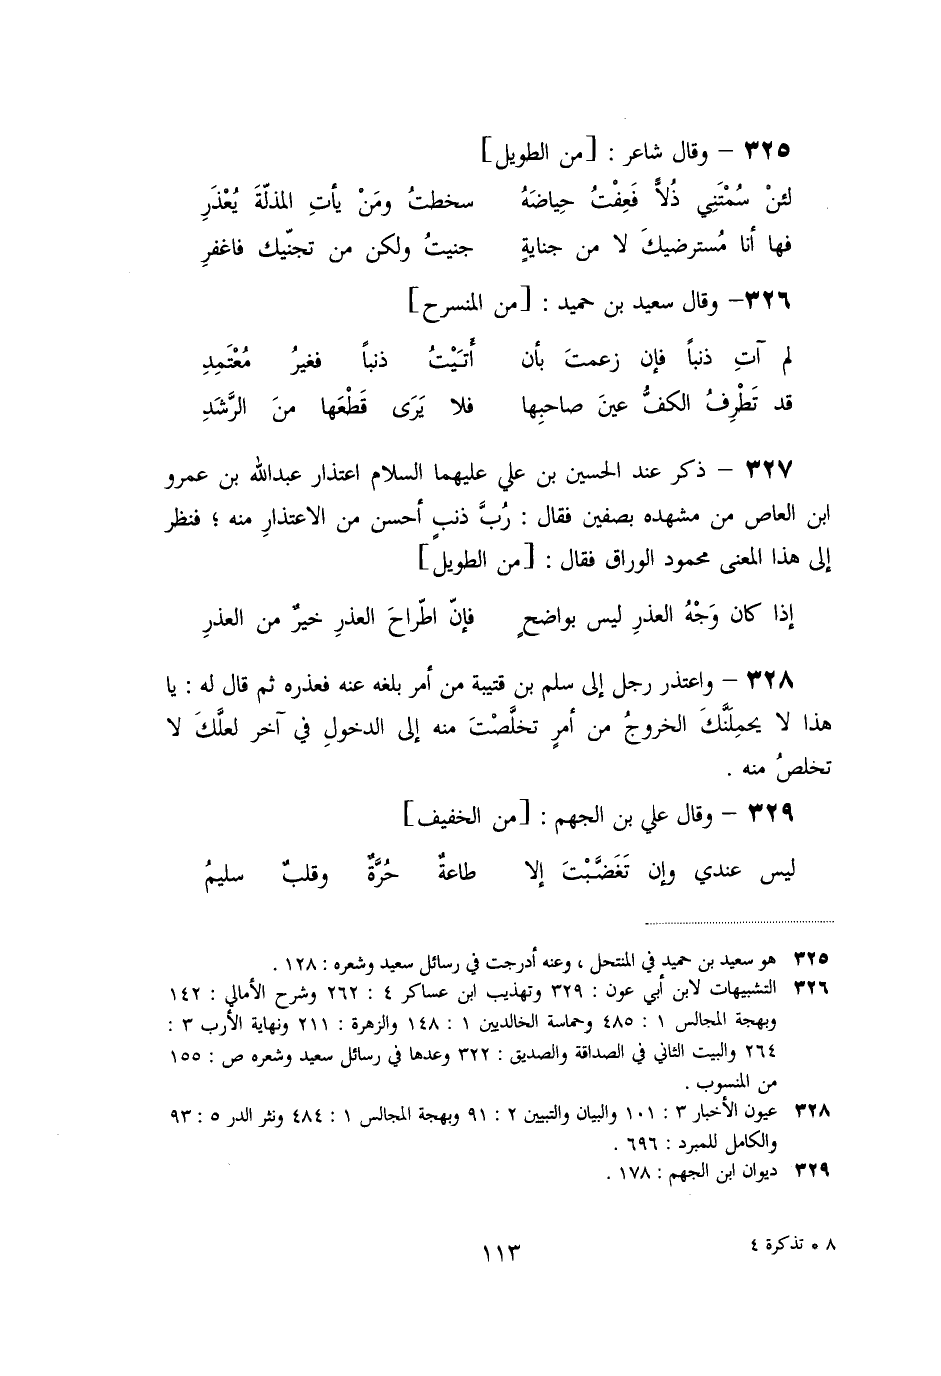 ٣٢٥ – وقال شاعر : [من الطويل]
لئنْ سُمْتَنِي ذُلاًّ فَعِفْتُ حِياضَهُ سخطتُ ومَنْ يأتِ المذلّةَ يُعْذَرِ
فها أنا مُسترضيكَ لا من جنايةٍ جنيتُ ولكن من تجنّيك فاغفرِ
٣٢٦– وقال سعيد بن حميد : [من المنسرح]
لم آتِ ذنباً فإن زعمتَ بأن أَتَيْتُ ذنباً فغيرُ مُعْتَمِدِ
قد تَطْرِفُ الكفُّ عينَ صاحبِها فلا يَرَى قَطْعَها منَ الرَّشَدِ
٣٢٧ – ذكر عند الحسين بن علي عليهما السلام اعتذار عبدالله بن عمرو
ابن العاص من مشهده بصفين فقال : رُبَّ ذنبٍ أحسن من الاعتذارِ منه ؛ فنظر
إلى هذا المعنى محمود الوراق فقال : [من الطويل]
إذا كان وَجْهُ العذرِ ليس بواضحٍ فإنّ اطّراحَ العذرِ خيرٌ من العذرِ
٣٢٨ – واعتذر رجل إلى سلم بن قتيبة من أمر بلغه عنه فعذره ثم قال له : يا
هذا لا يحمِلَنَّكَ الخروجُ من أمرٍ تخلَّصْتَ منه إلى الدخولِ في آخر لعلَّكَ لا
تخلصُ منه .
٣٢٩ – وقال علي بن الجهم : [من الخفيف]
ليس عندي وإن تَغَضَّبْتَ إلا طاعةٌ حُرَّةٌ وقلبٌ سليمُ
٣٢٥ هو سعيد بن حميد في المنتحل ، وعنه أدرجت في رسائل سعيد وشعره : ١٢٨ .
٣٢٦ التشبيهات لابن أبي عون : ٣٢٩ وتهذيب ابن عساكر ٤ : ٢٦٢ وشرح الأمالي : ١٤٢
وبهجة المجالس ١ : ٤٨٥ وحماسة الخالديين ١ : ١٤٨ والزهرة : ٢١١ ونهاية الأرب ٣ :
٢٦٤ والبيت الثاني في الصداقة والصديق : ٣٢٢ وعدها في رسائل سعيد وشعره ص : ١٥٥
من المنسوب .
٣٢٨ عيون الأخبار ٣ : ١٠١ والبيان والتبيين ٢ : ٩١ وبهجة المجالس ١ : ٤٨٤ ونثر الدر ٥ : ٩٣
والكامل للمبرد : ٦٩٦ .
٣٢٩ ديوان ابن الجهم : ١٧٨ .
٨ • تذكرة ٤
١١٣